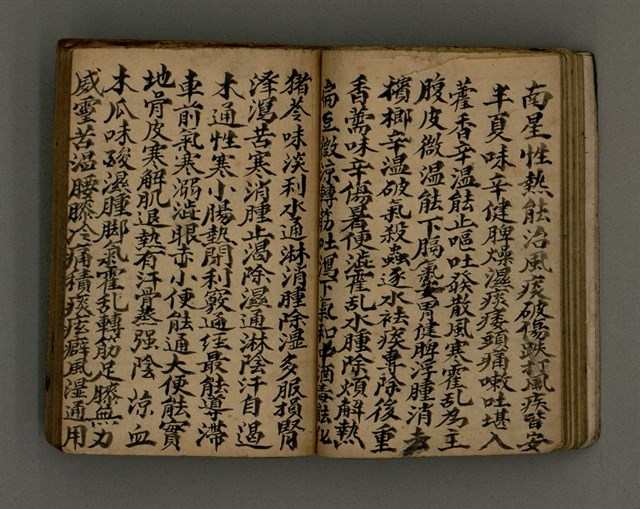 南星性熱能治風痰破傷跌打風疾皆安
半夏味辛健脾燥濕痰痿頭痛嗽吐堪入
藿香辛溫能止嘔吐發散風寒霍乱為主
腹皮微溫能下膈氣安胃健脾浮腫消去
檳榔辛溫破氣殺蟲逐水袪痰專除後重
香薷味辛傷暑便澁霍乱水腫除煩解熱
扁豆微涼轉筋吐瀉下氣和中酒毒能化
猪苓味淡利水通淋消腫除溼多服損腎
澤瀉苦寒消腫止渴除濕通淋陰汗自遏
木通性寒小腸熱閉利竅通經最能導滯
車前氣寒溺澁眼赤小便能通大便能實
地骨皮寒解肌退熱有汗骨蒸强陰涼血
木瓜味酸濕腫脚氣霍乱轉筋足膝無力
威靈苦溫腰膝冷痛積痰痃癖風湿通用